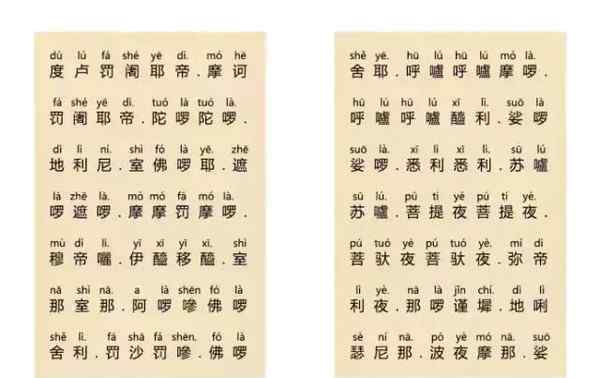 dù lú fá shé yē dì. mó hē
度卢罚阇耶帝.摩诃
fá shé yē dì. tuó là tuó là.
罚阇耶帝.陀啰陀啰.
dì lì ní. shì fó là yē. zhē
地利尼.室佛啰耶.遮
là zhē là. mó mó fá mó là.
啰遮啰.摩摩罚摩啰.
mù dì lì. yī xī yī xī. shì
穆帝囇.伊醯移醯.室
nā shì nā. ā là shēn fó là
那室那.阿啰嘇佛啰
shě lì. fá shā fá shēn. fó là
舍利.罚沙罚嘇.佛啰
shě yē. hū lú hū lú mó là.
舍耶.呼嚧呼嚧摩啰.
hū lú hū lú xī lì. suō là
呼嚧呼嚧醯利.娑啰
suō là. xī lì xī lì. sū lú
娑啰.悉利悉利.苏嚧
sū lú. pú tí yè pú tí yè.
苏嚧.菩提夜菩提夜.
pú tuó yè pú tuó yè. mí dì
菩驮夜菩驮夜.弥帝
lì yè. nà là jǐn chí. dì lì
利夜.那啰谨墀.地唎
sè ní nà. pō yè mó nà. suō
瑟尼那.波夜摩那.娑